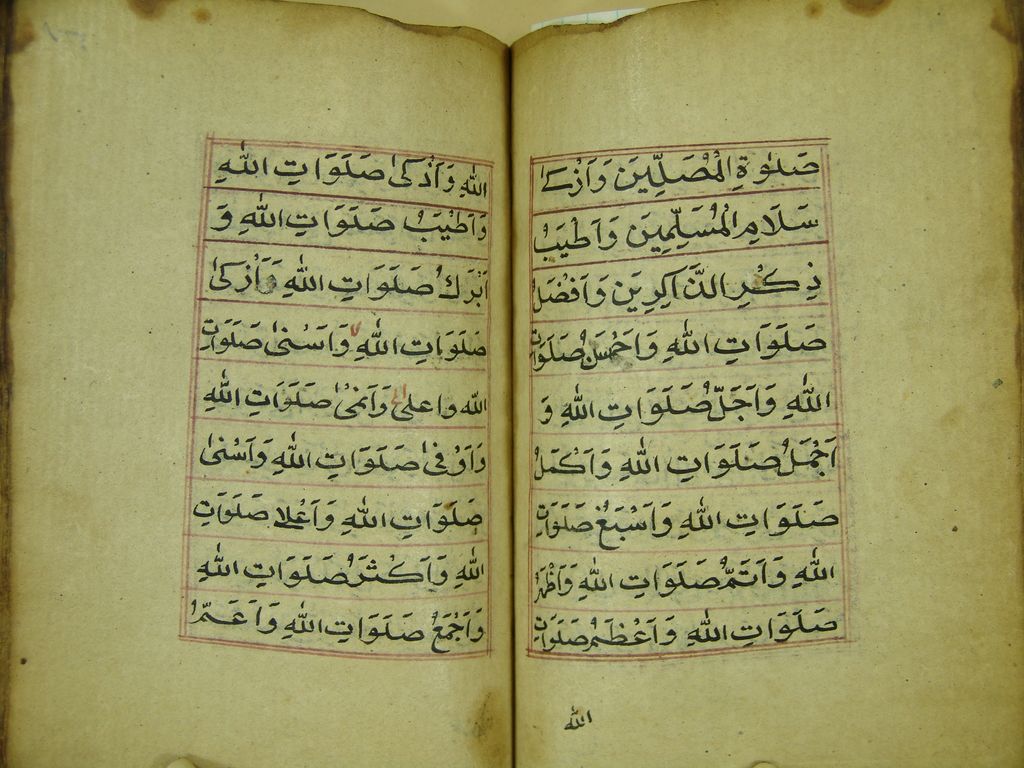 صَلٰوةِ الْمُصَلِّينَ وَاَزْكٰى
سَلَامِ الْمُسَلِّمِينَ وَاَطْيَبُ
ذِكْرِ الذَّاكِرِينَ وَاَفْضَلُ
صَلَوَاتِ اللّٰهِ وَاَحْسَنُ صَلَوَاتِ
اللّٰهِ وَاَجَلُّ صَلَوَاتِ اللّٰهِ وَ
اَجْمَلُ صَلَوَاتِ اللّٰهِ وَاَكْمَلُ
صَلَوَاتِ اللّٰهِ وَاَسْبَغُ صَلَوَاتِ
اللّٰهِ وَاَتَمُّ صَلَوَاتِ اللّٰهِ وَاَظْهَرُ
صَلَوَاتِ اللّٰهِ وَاَعْظَمُ صَلَوَاتِ
اللّٰه
اللّٰهِ وَاَذْكٰى صَلَوَاتِ اللّٰهِ
وَاَطْيَبُ صَلَوَاتِ اللّٰهِ وَ
اَبْرَكُ صَلَوَاتِ اللّٰهِ وَاَزْكٰى
صَلَوَاتِ اللّٰهِ وَاَسْنٰى صَلَوَاتِ
اللّٰه واعلى وَاَنمٰى صَلَوَاتِ اللّٰهِ
وَاَوْفىٰ صَلَوَاتِ اللّٰهِ وَاَسْنىٰ
صَلَوَاتِ اللّٰهِ وَاَعْلَا صَلَوَاتِ
اللّٰهِ وَاَكْثَرُ صَلَوَاتِ اللّٰهِ
وَاَجْمَعُ صَلَوَاتِ اللّٰهِ وَاَعَمُّ